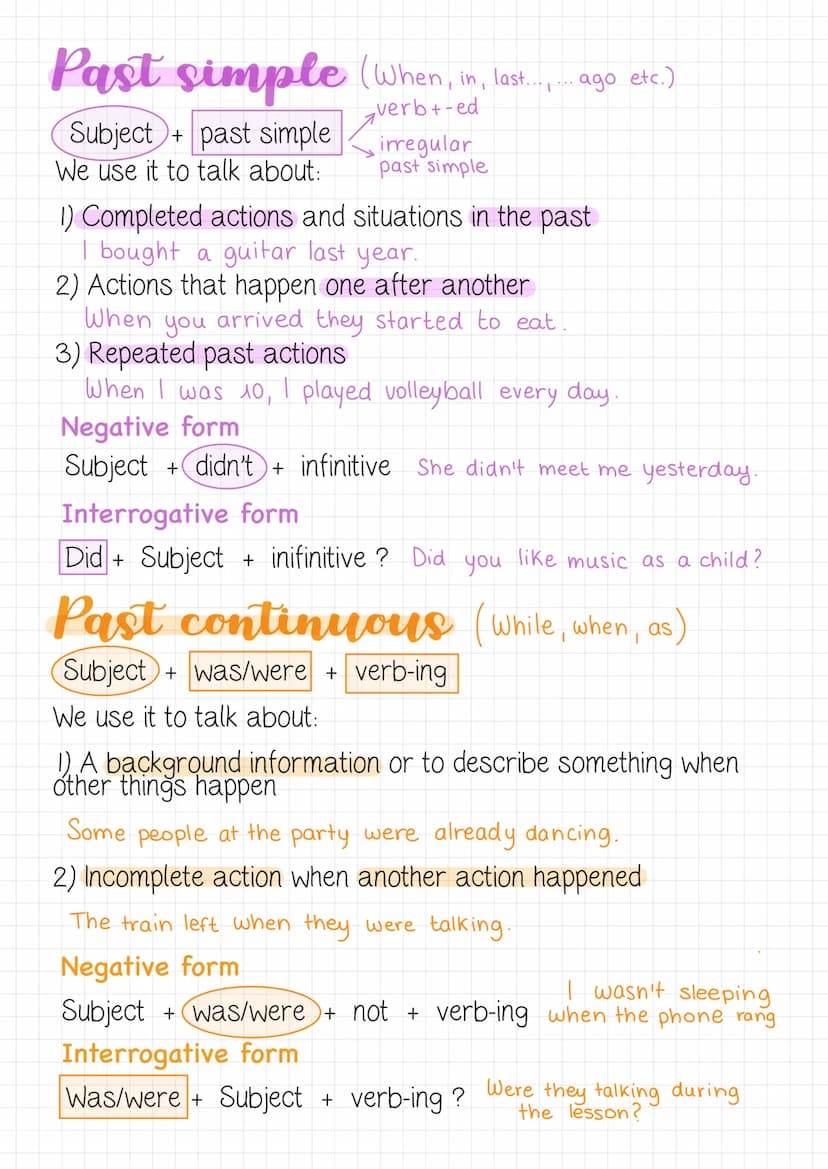 Past simple (When, in, last..., ... ago etc.)
verb+-ed
Subject + past simple
irregular
past simple
We use it to talk about:
1) Completed actions and situations in the past
I bought a guitar last year.
2) Actions that happen one after another
When you arrived they started to eat.
3) Repeated past actions
When I was 10, I played volleyball every day.
Negative form
Subject + didn't + infinitive She didn't meet me yesterday.
Interrogative form
Did + Subject + inifinitive ? Did you like music as a child?
Past continuous (While, when, as)
Subject + was/were + verb-ing
We use it to talk about:
1) A background information or to describe something when
other things happen
Some people at the party were already dancing.
2) Incomplete action when another action happened
The train left when they were talking.
Negative form
Subject + was/were + not + verb-ing
I wasn't sleeping
when the phone rang
Interrogative form
Was/were + Subject + verb-ing ?
Were they talking during
the lesson?